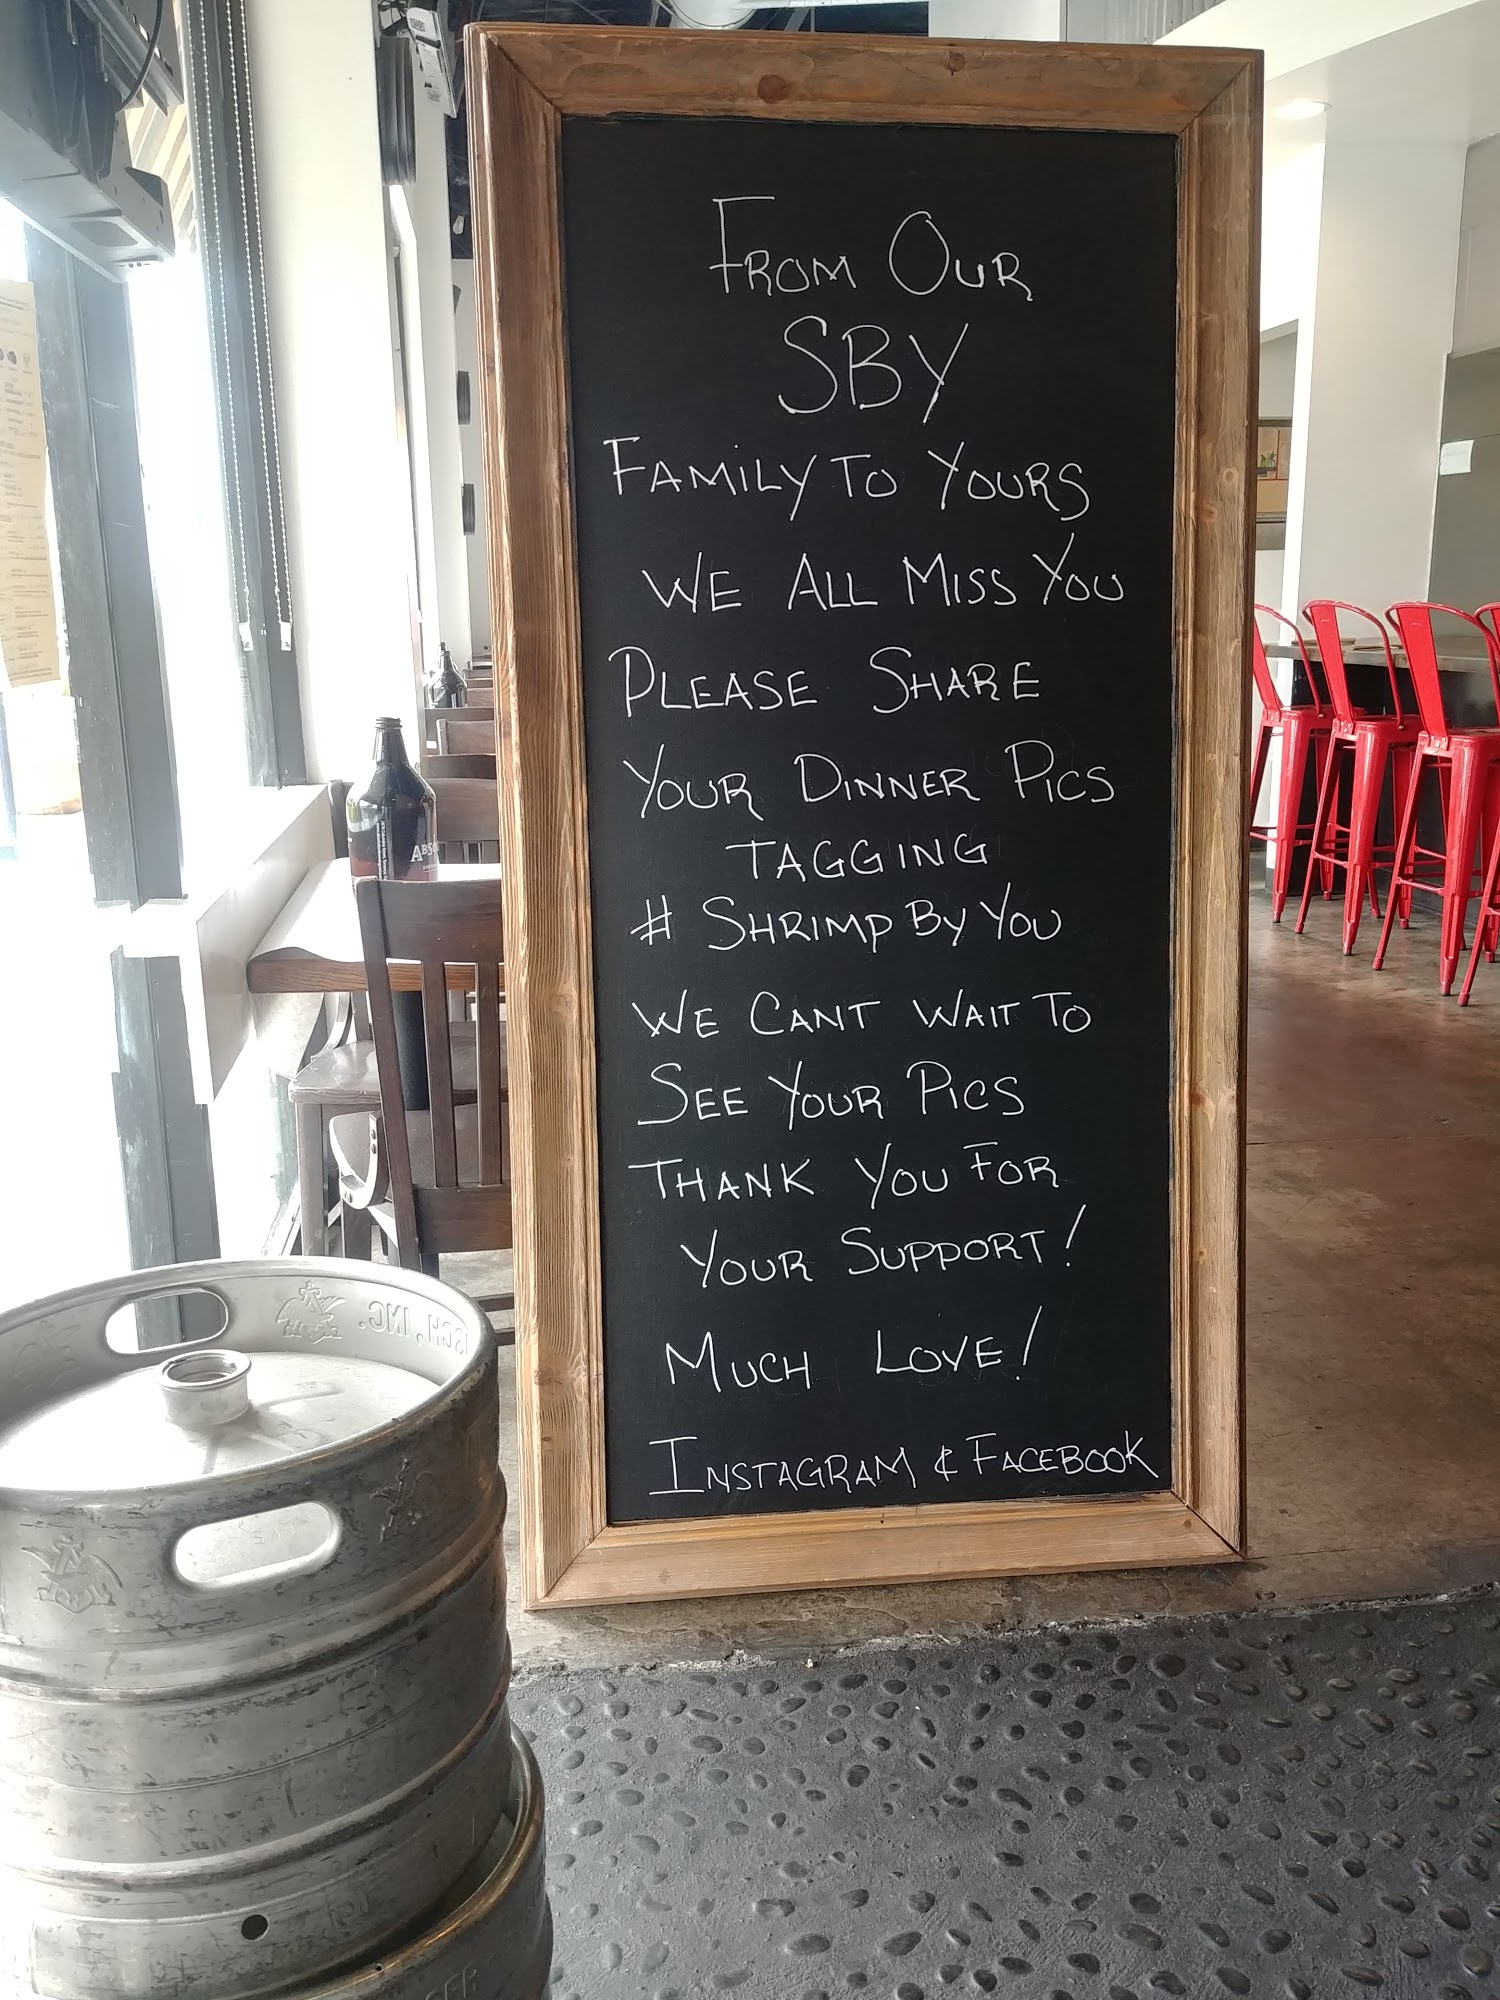 From Our
SBY
Family To Yours
We All Miss You
Please Share
Your Dinner Pics
Tagging
# Shrimp By You
We Cant Wait To
See Your Pics
Thank You For
Your Support!
Much Love!
Instagram & Facebook
SCH, INC.